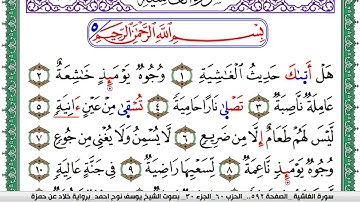 بِسْمِ اللَّهِ الرَّحْمَٰنِ الرَّحِيمِ
هَلْ أَتَىٰكَ حَدِيثُ الْغَٰشِيَةِ ١ وُجُوهٌ يَوْمَئِذٍ خَٰشِعَةٌ ٢
عَامِلَةٌ نَّاصِبَةٌ ٣ تَصْلَىٰ نَارًا حَامِيَةً ٤ تُسْقَىٰ مِنْ عَيْنٍ ءَانِيَةٍ ٥
لَّيْسَ لَهُمْ طَعَامٌ إِلَّا مِن ضَرِيعٍ ٦ لَّا يُسْمِنُ وَلَا يُغْنِي مِن جُوعٍ ٧
وُجُوهٌ يَوْمَئِذٍ نَّاعِمَةٌ ٨ لِّسَعْيِهَا رَاضِيَةٌ ٩ فِي جَنَّةٍ عَالِيَةٍ ١٠
سورة الغاشية _ الصفحة ٥٩٢.. الحزب ٦٠_ الجزء ٣٠. بصوت الشيخ يوسف نوح احمد برواية خلاد عن حمزة